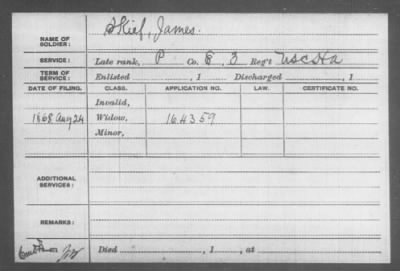 NAME OF SOLDIER: Skief, James.
SERVICE: Late rank, P Co. E, 3 Reg't USCHa
TERM OF SERVICE: Enlisted , 1 Discharged , 1
DATE OF FILING. CLASS. APPLICATION NO. LAW. CERTIFICATE NO.
Invalid,
1868 Aug 24 Widow, 164359
Minor,
ADDITIONAL SERVICES:
REMARKS:
Died , 1 , at